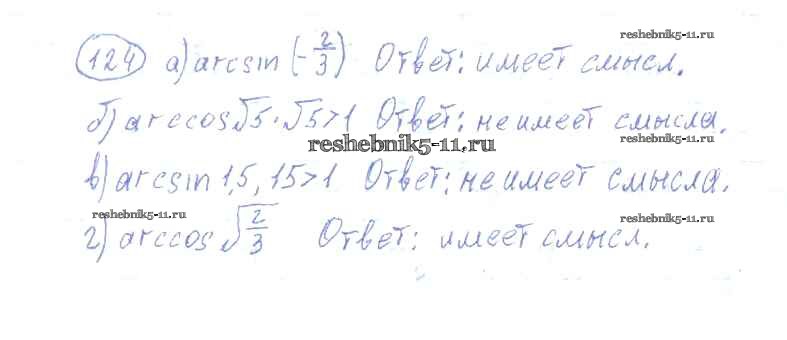 reshebnik5-11.ru
124 а) arcsin (-2/3) Ответ: имеет смысл.
б) arccos√5 · √5>1 Ответ: не имеет смысла.
reshebnik5-11.ru
в) arcsin 1,5, 15>1 Ответ: не имеет смысла.
reshebnik5-11.ru reshebnik5-11.ru
г) arccos √2/3 Ответ: имеет смысл.